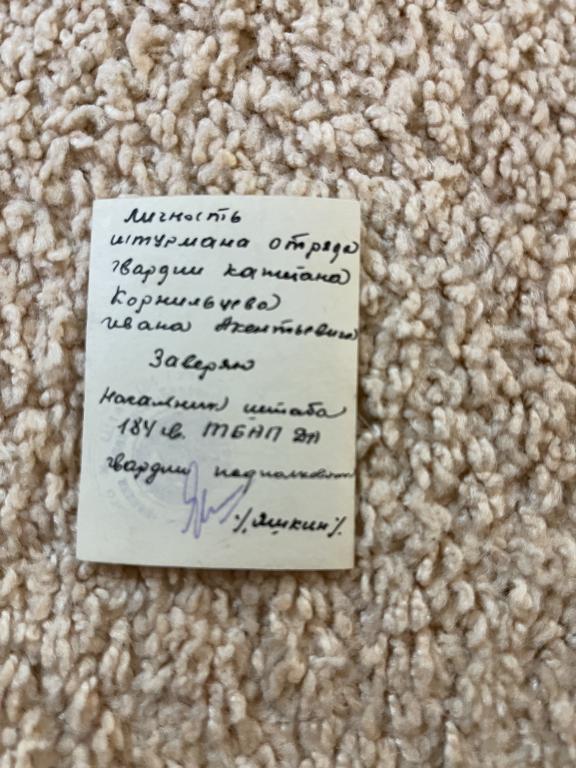 Личность
штурмана отряда
гвардии капитана
Корнильцева
Ивана Акентьевича
Заверяю
Начальник штаба
184 гв. ТБАП ДА
гвардии подполковник
/Яшкин/